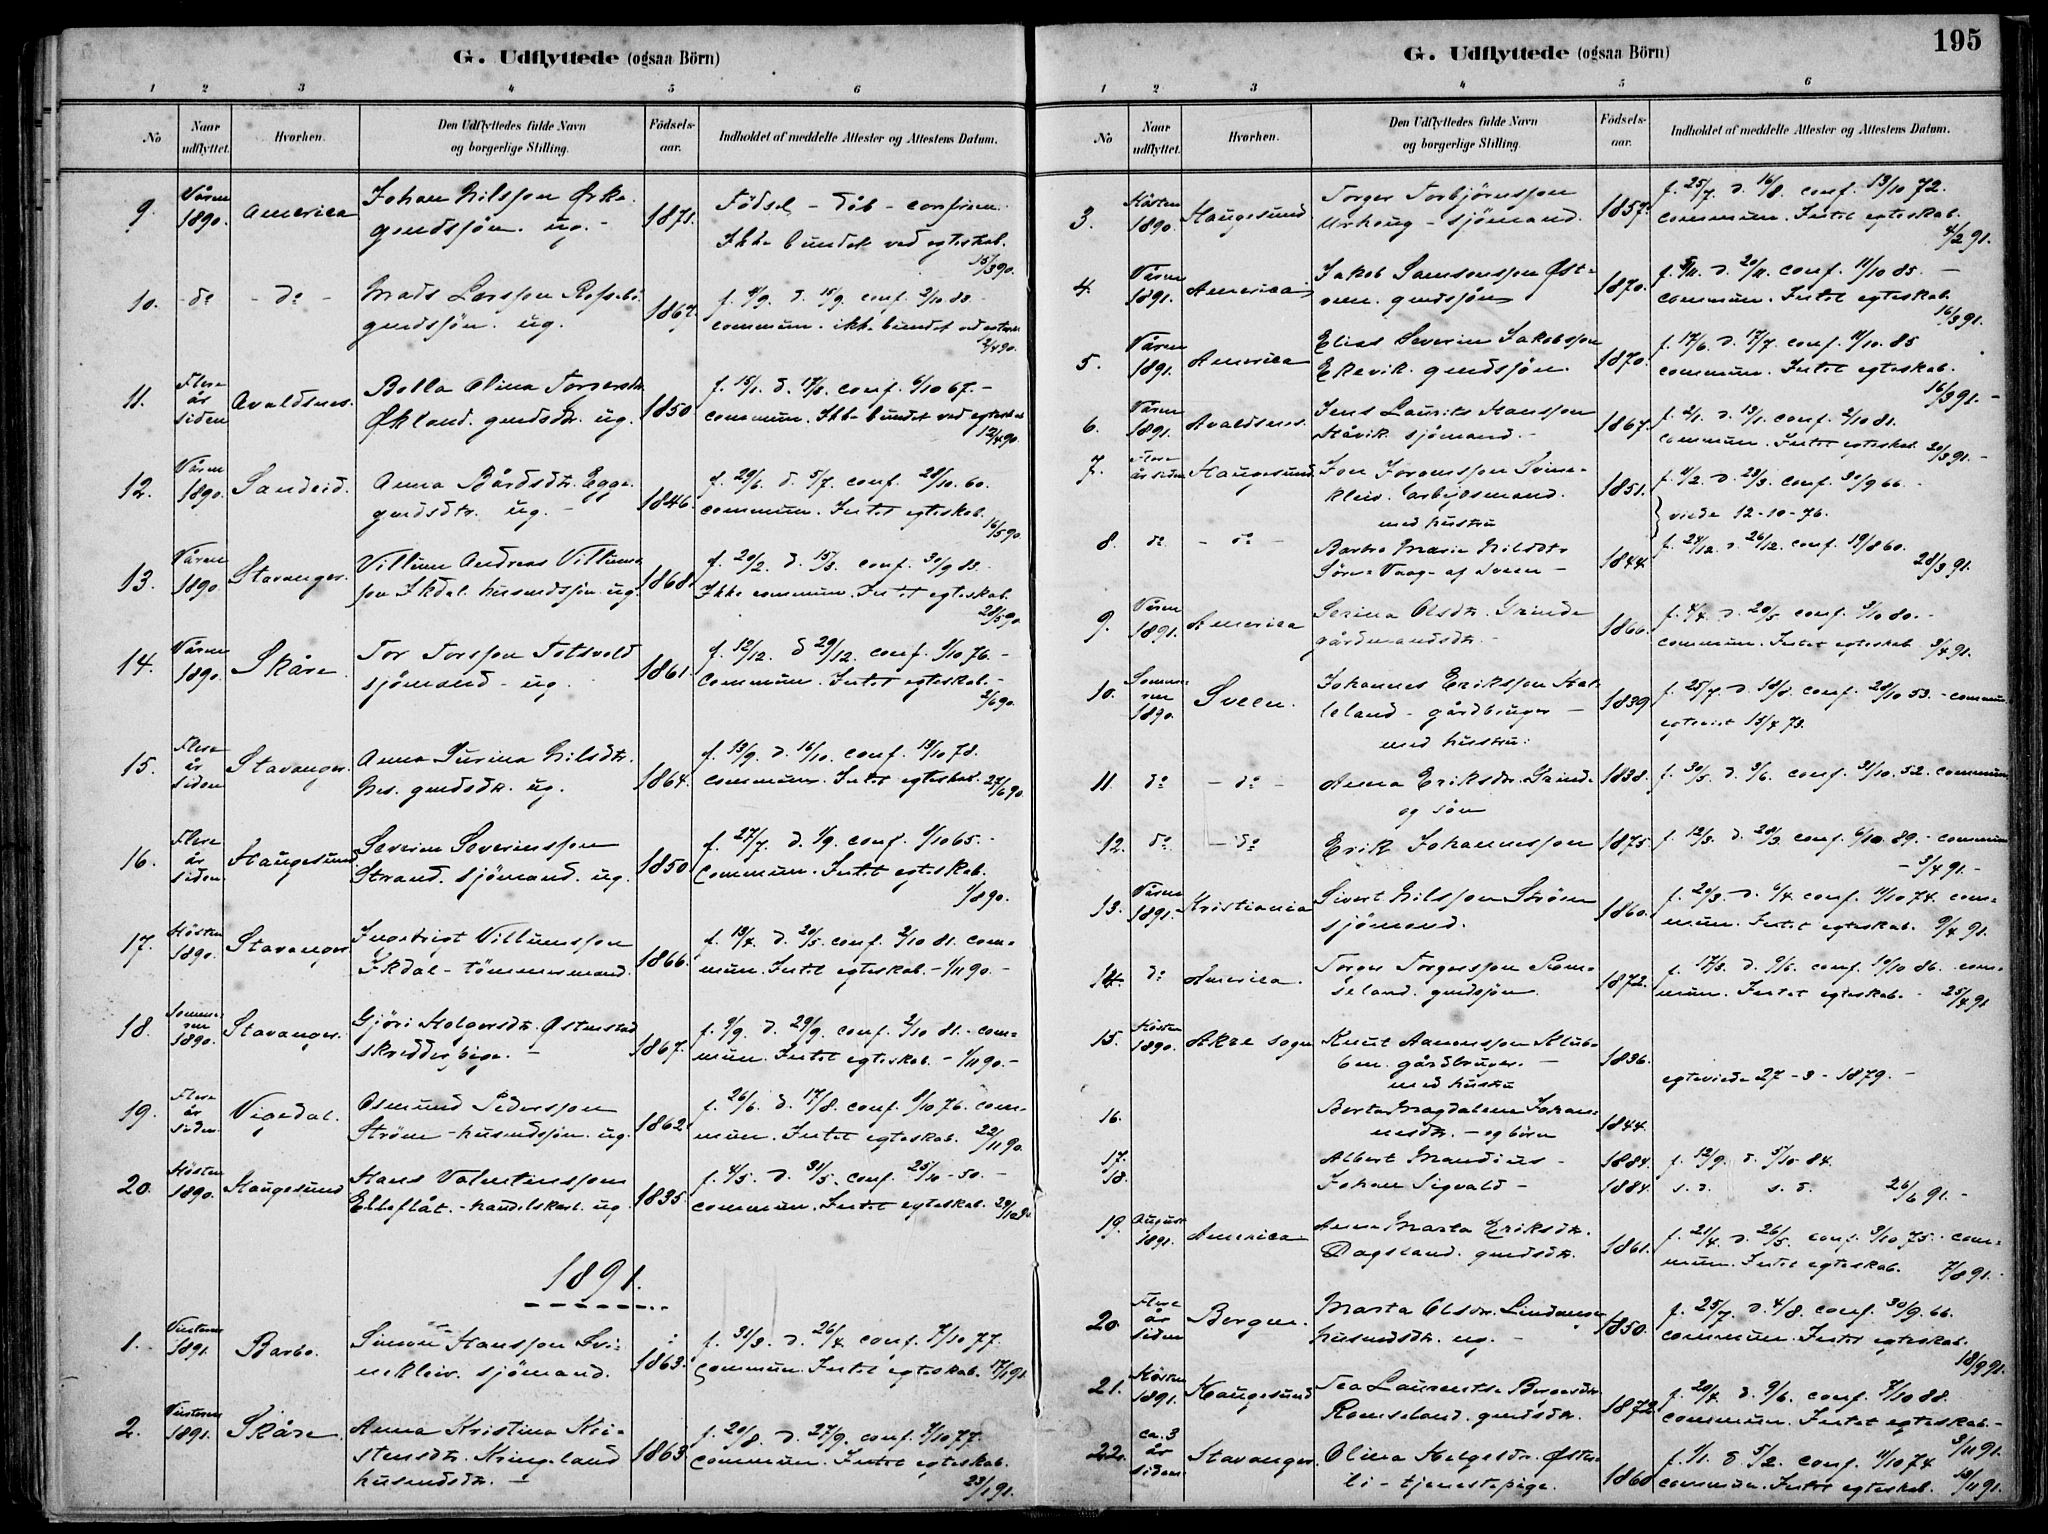 195
G. Udflyttede (ogsaa Börn)
1 2 3 4 5 6
No Naar udflyttet. Hvorhen. Den Udflyttedes fulde Navn og borgerlige Stilling. Födsels-aar. Indholdet af meddelte Attester og Attestens Datum.
9. Våren 1890. America Johan Nilsson
gmdssjön. ug. - 1871. Fødsel - dåb - confirm.
Ikke bundet ved egteskab. 15/3 90.
10. do - do - Mads Larsson
gmdssøn. ug. 1867. f. 4/9. d. 15/9. conf. 2/10 83. -
commun. ikke bundet ved egtesk. 2/4 90.
11. Flere år siden Avaldsnes. Bolla Olina Torgersdtr.
Økland. gmdsdtr. ug. 1850 f. 15/1. d. 17/3. conf. 6/10 67. -
commun. Ikke bundet ved egteskab 12/4 90.
12. Våren 1890. Sandeid. Anna Bårdsdtr. Egge.
gmdsdtr. ug. - 1846. f. 29/6. d. 5/7. conf. 28/10. 60.
commun. Intet egteskab. 16/5 90.
13. Våren 1890. Stavanger. Villum Andreas Villums-
son Ikdal. husmdssjön. ug. 1868. f. 20/2. d. 15/3. conf. 30/9 83. -
Ikke commun. Intet egteskab. 28/5 90
14. Våren 1890. Skåre. Tor Torsson Totsvold
sjömand - ug. 1861. f. 12/12. d 29/12. conf. 1/10 76. -
commun. Intet egteskab. - 2/6 90.
15. Flere år siden Stavanger. Anna Surina Nilsdtr.
Nes. gmdsdtr. ug. 1864. f. 13/9. d. 16/10. conf. 13/10 78.
commun. Intet egteskab. 27/6 90.
16. Flere år siden. Haugesund. Severin Severinsson
Strand. sjömand. ug. 1850. f. 27/7. d. 1/9. conf. 1/10 65. -
Commun. Intet egteskab. 1/8 90.
17. Høsten 1890. Stavanger Ingebrigt Villumsson
Ikdal - tömmermand. 1866. f. 13/4. d. 20/5. conf. 2/10 81. com-
mun. Intet egteskab. - 1/11 90. -
18. Sommeren 1890. Stavanger. Gjöri Holgersdtr. Østenstad
skredderpige. - 1867. f. 9/9. d. 29/9. conf. 2/10 81. com-
mun. Intet egteskab. - 1/11 90. -
19. Flere år siden. Vigedal. Osmund Pedersson
Strøm - husmdssjön. ug. 1862. f. 26/6. d. 17/8. conf. 8/10 76. com-
mun. Intet egteskab. 22/11 90.
20. Høsten 1890. Haugesund Hans Valentinsson
Ebbeflåt. - handelskarl. ug. 1835. f. 4/5. d. 31/5. conf. 25/10 - 50. -
commun. Intet egteskab.
1891.
1. Vinteren 1891. Barbo. Simon Hansson Svi-
nekleiv. sjömand. 1863. f. 31/3. d. 26/4. conf. 7/10 77.
commun. Intet egteskab. 17/1 91.
2. Vinteren 1891. Skåre. Anna Kristina Kri-
stensdtr. Kringeland
husmdsdtr. - 1863. f. 20/8. d. 27/9. conf. 7/10 77.
commun. Intet egteskab. 23/1 91.
G. Udflyttede (ogsaa Börn)
1 2 3 4 5 6
No Naar udflyttet. Hvorhen. Den Udflyttedes fulde Navn og borgerlige Stilling. Födsels-aar. Indholdet af meddelte Attester og Attestens Datum.
3. Høsten 1890. Haugesund Torger Torbjörnsson
- sjömand. 1857. f. 25/7. d. 16/8. conf. 13/10 72.
commun. Intet egteskab. 4/2 91.
4. Våren 1891. America Jakob Samsonsson Øst-
rem. gmdssjön 1870. f. 5/11. d. 20/11. conf. 11/10 85. -
commun. Intet egteskab. 16/3 91.
5. Våren 1891. America Elias Severin Jakobsson
Ekevik. gmdssjön. 1870. f. 17/6. d. 17/7. conf. 11/10. 85
commun. Intet egteskab. 16/3 91. -
6. Våren 1891. Avaldsnes. Jens Laurits Hansson
Håvik sjömand. - 1867. f. 2/1. d. 13/1. conf. 2/10 81.
commun. Intet egteskab. 20/3 91. -
7. Flere år siden Haugesund Jon Joronsson Svine-
kleiv. arbejdsmand.
med hustru 1851. f. 11/2. d. 23/3. conf. 30/9 66. -
viede 12-10-76.
8. do - do - Barbro Marie Nilsdtr.
Sörre Vaag - af Sveen - 1844. f. 24/12. d. 26/12. conf. 19/8 60.
28/3 91.
9. Våren 1891. America Serina Olsdtr. Grinde
gårdmandsdtr. - 1866. f. 4/4. d. 20/5. conf. 3/10 80. -
commun. Intet egteskab. 3/4 91.
10. Sommeren 1890. Sveen. Johannes Eriksson Hak-
leland - gårdbruger -
med hustru. 1839 f. 25/7. d. 18/8. conf. 28/10 53. - commun
egteviet 15/4 73.
11. do - do - Anna Eriksdtr. Grind.
og sön 1838. f. 30/5. d. 3/6. conf. 31/10. 52. commun
12. do - do Erik Johannesson 1875. f. 12/3. d. 28/3. conf. 6/10. 89. - commun
- 3/4 91. -
13. Våren 1891. Kristiania Sivert Nilsson Strøm
sjömand. 1860. f. 20/3. d. 6/4. conf. 11/10 74. com-
mun. Intet egteskab. 9/4 91.
14. do America. Torger Torgersson Rom-
seland. gmdssjön. 1872. f. 17/3. d. 9/6. conf. 10/10 86. com-
mun. Intet egteskab. - 25/4 91
15. Høsten 1890. Akre sogn Knut Aanensson Klub-
ben. gårdbruger. -
med hustru 1836.
egteviede 27-3-1879. -
16. Berta Magdalena Johan-
nesdtr. - og börn 1844.
17. Albert Mandius - 1884. f. 12/9. d. 5/10 84.
18. Johan Sigvald - 1884. s. d. s. d. 26/6 91. -
19. August 1891. America Anna Marta Eriksdtr.
Dagsland. gmdsdtr. 1861. f. 21/4. d. 26/5. conf. 3/10 75. com-
mun. Intet egteskab. 7/8 91. -
20. Flere år siden Bergen. Marta Olsdtr. Lindanger
husmdsdtr. ug. - 1850. f. 25/7. d. 4/8. conf. 30/9. 66.
commun. Intet egteskab. 18/9 91.
21. Høsten 1891. Haugesund Tea Laurentse Bergesdtr.
Romseland. gmdsdtr. 1872. f. 20/4. d. 9/6. conf. 7/10 88.
commun. Intet egteskab. - 3/11 91.
22. ca. 3 år siden Stavanger. Olina Helgesdtr. Østen-
li - tjenestepige. 1860 f. 1/1. d. 5/2. conf. 11/10 74
commun. Intet egteskab. 18/11 91.